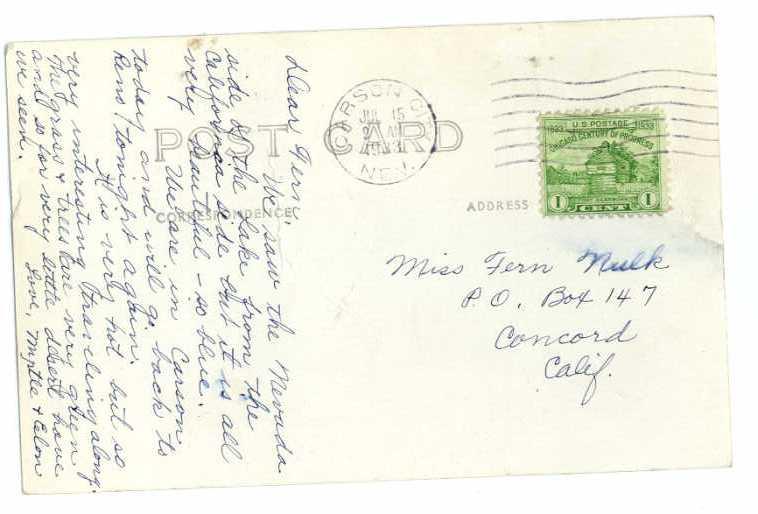 POST CARD
CORRESPONDENCE
ADDRESS
Dear Fern:
We saw the Nevada
side of the lake from the
California side but it is all
very beautiful - so blue.
We are in Carson
today and will go back to
Reno tonight again.
It is very hot but so
very interesting traveling along.
The grass & trees are very green
and so far very little desert have
we seen.
Love, Myrtle & Elon
CARSON C
JUL 15
AM
1933
NEV.
U.S. POSTAGE
1833 1933
CHICAGO CENTURY OF PROGRESS
1 CENT 1
Miss Fern Nulk
P.O. Box 147
Concord
Calif.